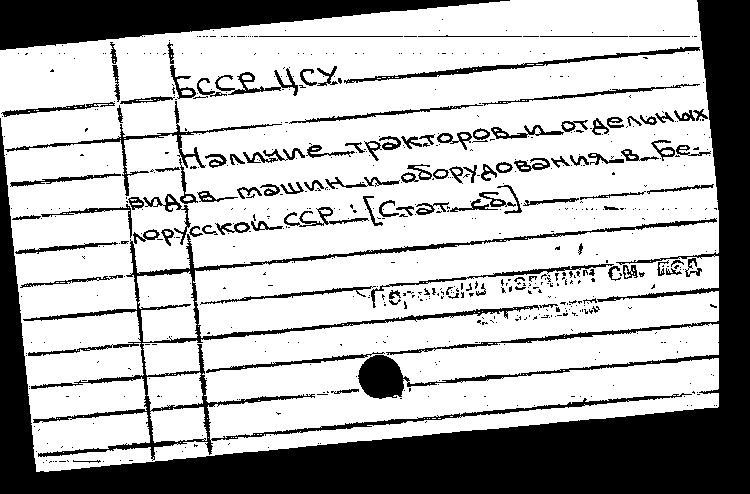 БССР. ЦСУ.
Наличие тракторов и отдельных
видов машин и оборудования в Бе-
лорусской ССР : [Стат. сб.].
Перечень изданий см. под